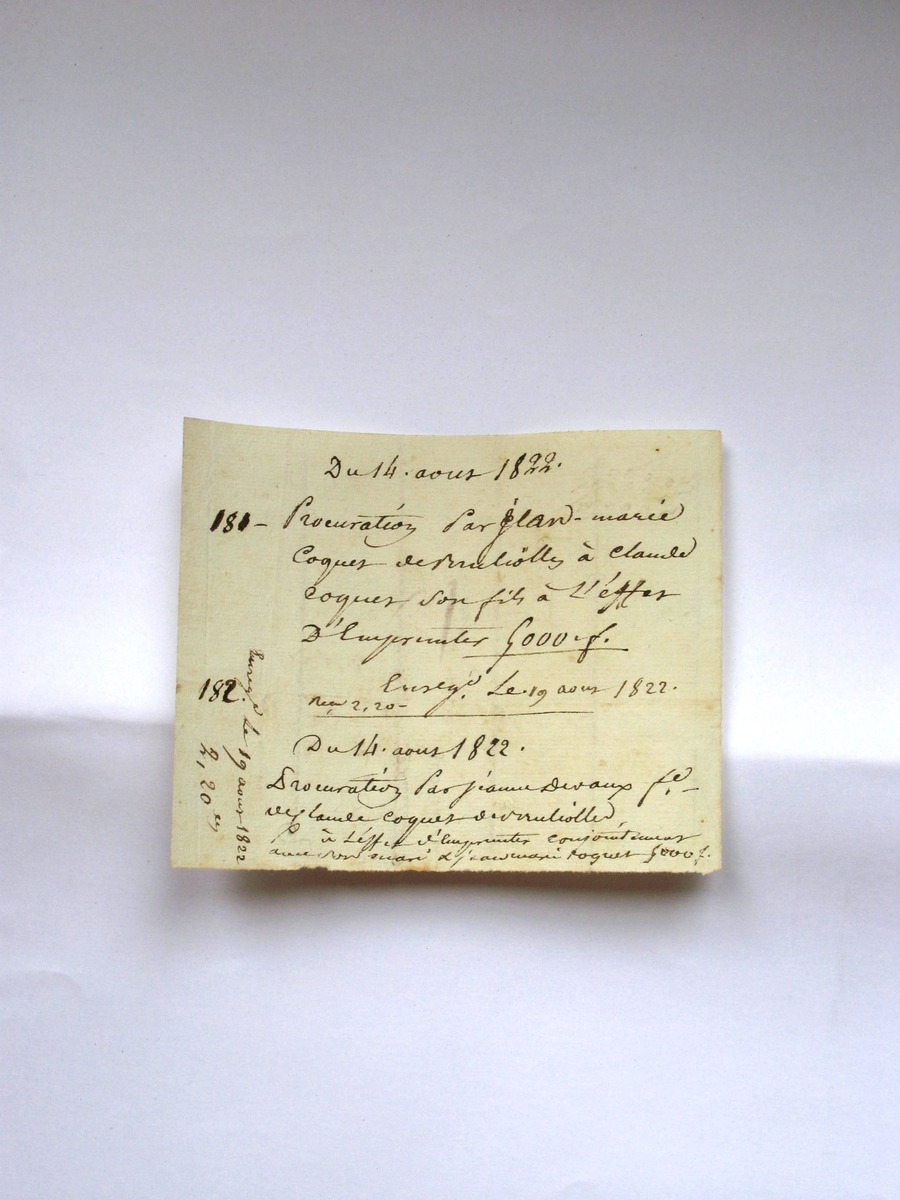 Du 14. aout 1822.
181 - Procuration Par jean-marie
Coquet de à Claude
Coquet Son fils à L'éffet
D'Emprunter 5000 f.
182. Enregé. Le 19 aout 1822.
2,20 -
Du 14. aout 1822.
Procuration Par jeanne Devaux fe. -
de Claude Coquet de
à L'éffet d'Emprunter conjointement
avec Son mari & jean marie Coquet 5000 f.
Enregé. Le 19 aout 1822
2,20